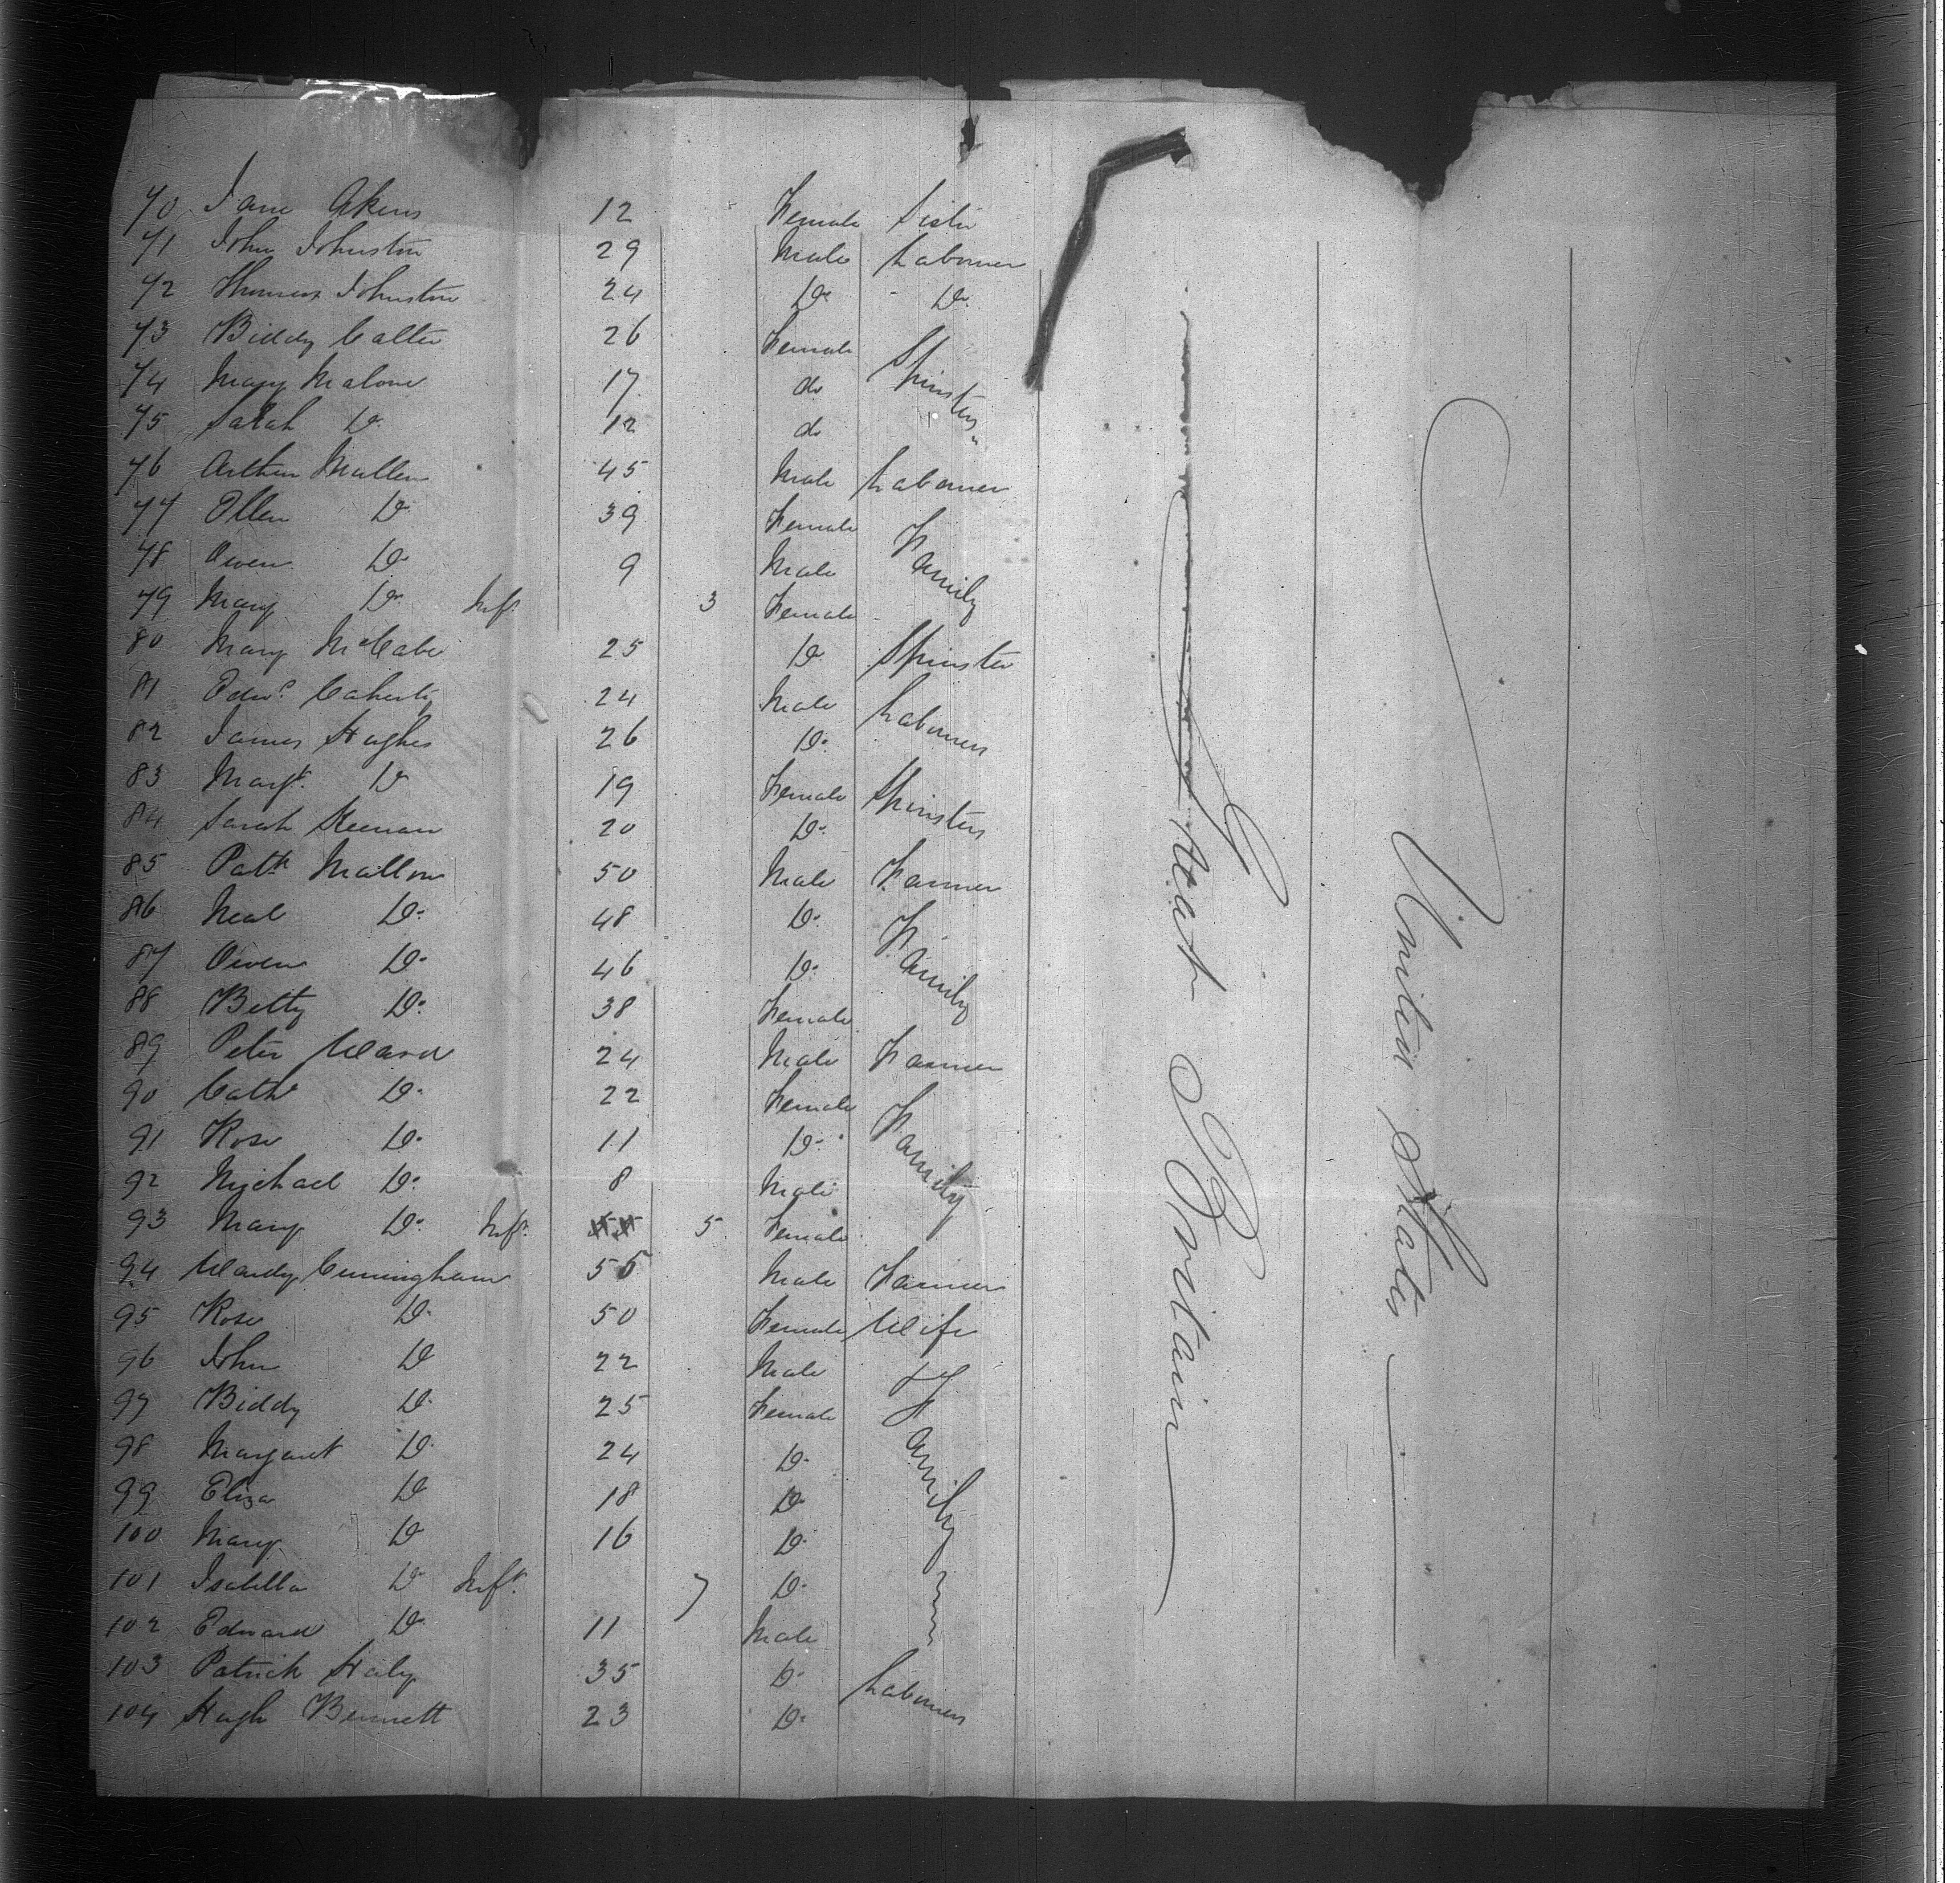 70 Jane Akens 12 Female Sister
71 John Johnston 29 Male Labourer
72 Thomas Johnston 24 Do Do
73 Biddy 26 Female
74 Mary Malone 17 do Spinsters
75 Sarah Do 12 do
76 Arthur Mullen 45 Male Labourer
77 Ellen Do 39 Female
78 Owen Do 9 Male Family
79 Mary Do Inft 3 Female
80 Mary McCabe 25 Do Spinster
81 Edwd. Caherty 24 Male Labourers
82 James Hughes 26 Do.
83 Margt. Do 19 Female Spinsters
84 Sarah Keenan 20 Do.
85 Patk Mallon 50 Male Farmer
86 Neal Do. 48 Do.
87 Owen Do. 46 Do. Family
88 Betty Do. 38 Female
89 Peter Ward 24 Male Farmer
90 Cathe Do. 22 Female
91 Rose Do. 11 Do. Family
92 Michael Do. 8 Male
93 Mary Do. Inft. 5 Female
94 Cunningham 55 Male Farmer
95 Rose Do. 50 Female Wife
96 John Do 22 Male
97 Biddy Do. 25 Female
98 Margaret Do. 24 Do. Family
99 Eliza Do 18 Do.
100 Mary Do 16 Do.
101 Isabella Do Inft. 7 Do.
102 Edward Do. 11 Male
103 Patrick Haly 35 Do. Labourers
104 Hugh Bennett 23 Do.
Great Britain
United States